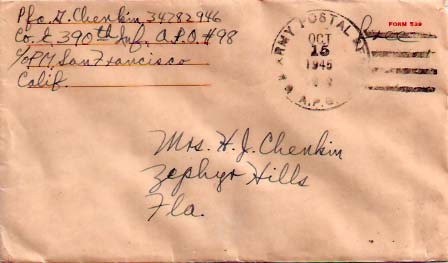 Pfc. H. Chenkin 34282946
Co. E 390th Inf. A.P.O. #98
c/o PM. San Francisco
Calif.
ARMY POSTAL
OCT
15
1945
A.P.O.
FORM 539
Free
Mrs. H. J. Chenkin
Zephyr Hills
Fla.